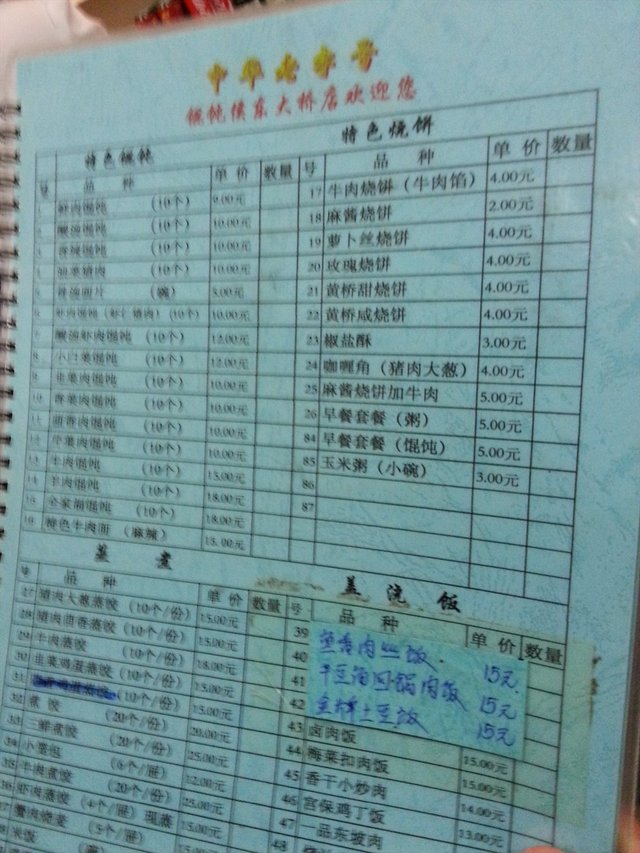 中华老字号
馄饨侯东大桥店欢迎您
特色馄饨
品 种 单 价 数量
鲜肉馄饨 (10个) 9.00元
酸汤馄饨 (10个) 10.00元
(10个) 10.00元
油菜猪肉 (10个) 10.00元
(碗) 5.00元
虾肉馄饨(虾仁猪肉)(10个) 10.00元
酸汤虾肉馄饨 (10个) 12.00元
小白菜馄饨 (10个) 12.00元
韭菜肉馄饨 (10个) 10.00元
荠菜肉馄饨 (10个) 10.00元
茴香肉馄饨 (10个) 10.00元
芹菜肉馄饨 (10个) 10.00元
牛肉馄饨 (10个) 15.00元
羊肉馄饨 (10个) 18.00元
全菜福馄饨 (10个) 18.00元
特色牛肉面 (麻辣) 15.00元
特色烧饼
号 品 种 单 价 数量
17 牛肉烧饼(牛肉馅) 4.00元
18 麻酱烧饼 2.00元
19 萝卜丝烧饼 4.00元
20 玫瑰烧饼 4.00元
21 黄桥甜烧饼 4.00元
22 黄桥咸烧饼 4.00元
23 椒盐酥 3.00元
24 咖喱角(猪肉大葱) 4.00元
25 麻酱烧饼加牛肉 5.00元
26 早餐套餐(粥) 5.00元
84 早餐套餐(馄饨) 5.00元
85 玉米粥(小碗) 3.00元
86
87
蒸 煮
号 品 种 单 价 数量
27 猪肉大葱蒸饺(10个/份) 15.00元
28 猪肉茴香蒸饺(10个/份) 15.00元
29 牛肉蒸饺 (10个/份) 18.00元
30 韭菜鸡蛋蒸饺(10个/份) 15.00元
31 (10个/份) 15.00元
32 煮饺 (20个/份) 20.00元
33 三鲜煮饺 (20个/份) 25.00元
34 小笼包 (6个/屉) 12.00元
35 牛肉煮饺 (20个/份) 25.00元
36 虾肉蒸饺(4个/屉)现蒸 15.00元
37 蟹肉烧麦 (3个/屉) 15.00元
38 米饭
盖 浇 饭
号 品 种 单 价 数量
39 鱼香肉丝饭 15元
40 干豆角回锅肉饭 15元
41 土豆饭 15元
42
43 卤肉饭 15.00元
44 梅菜扣肉饭 15.00元
45 香干小炒肉 14.00元
46 宫保鸡丁饭 13.00元
47 一品东坡肉
48